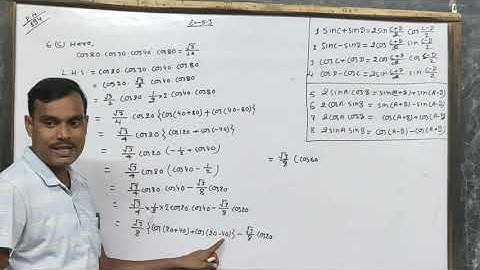 6 (5) Here,
cos20 cos30 cos40 cos80 = √3/16
L.H.S = cos20 cos30 cos40 cos80
= cos20 √3/2 cos40 cos80
= √3/2 cos20 1/2 × 2 cos40 cos80
= √3/4 cos20 {cos(40+80) + cos(40-80)}
= √3/4 cos20 {cos120 + cos(-40)}
= √3/4 cos20 (-1/2 + cos40)
= √3/4 cos20 (cos40 - 1/2)
= √3/4 cos20 cos40 - √3/8 cos20
= √3/4 × 1/2 × 2 cos20 cos40 - √3/8 cos20
= √3/8 {cos(20+40) + cos(20-40)} - √3/8 cos20
= √3/8 (cos60
1 sinC + sinD = 2 sin C+D/2 cos C-D/2
2 sinC - sinD = 2 cos C+D/2 sin C-D/2
3 cosC + cosD = 2 cos C+D/2 cos C-D/2
4
5 2 sinA cosB = sin(A+B) + sin(A-B)
6 2 cosA sinB = sin(A+B) - sin(A-B)
7 2 cosA cosB = cos(A+B) + cos(A-B)
8 2 sinA sinB = cos(A-B) - cos(A+B)